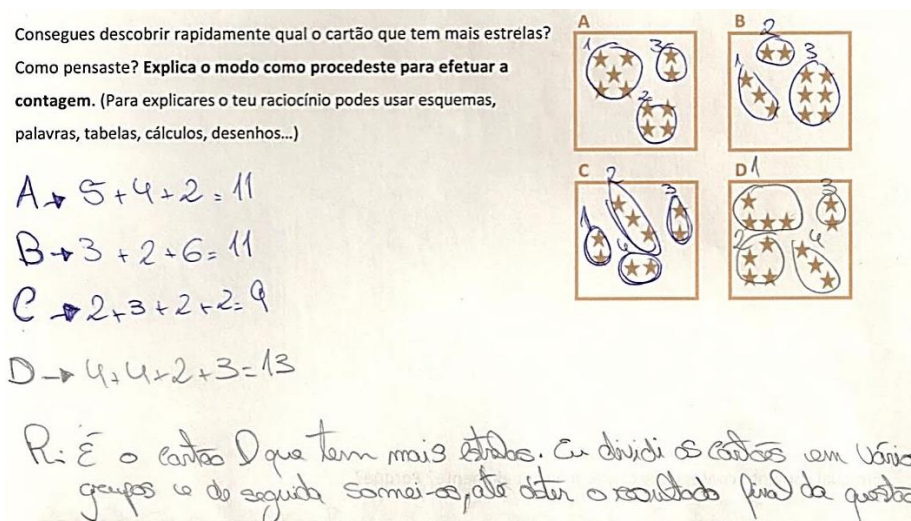 Consegues descobrir rapidamente qual o cartão que tem mais estrelas?
Como pensaste? Explica o modo como procedeste para efetuar a
contagem. (Para explicares o teu raciocínio podes usar esquemas,
palavras, tabelas, cálculos, desenhos...)
A
1
3
2
B
2
1
3
C
2
1
3
4
D
1
3
2
4
A → 5+4+2=11
B → 3+2+6=11
C → 2+3+2+2=9
D → 4+4+2+3=13
R: É o cartão D que tem mais estrelas. Eu dividi os cartões em vário
grupos e de seguida somei-os, até obter o resultado final da questão